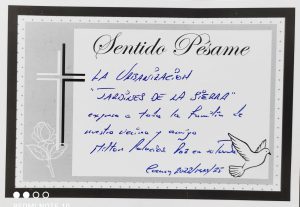 Sentido Pésame
LA URBANIZACIÓN
"JARDINES DE LA SIERRA"
expresa a toda la familia de
nuestro vecino y amigo
Milton Palacios Paz en su tumba
Cuenca 2022/